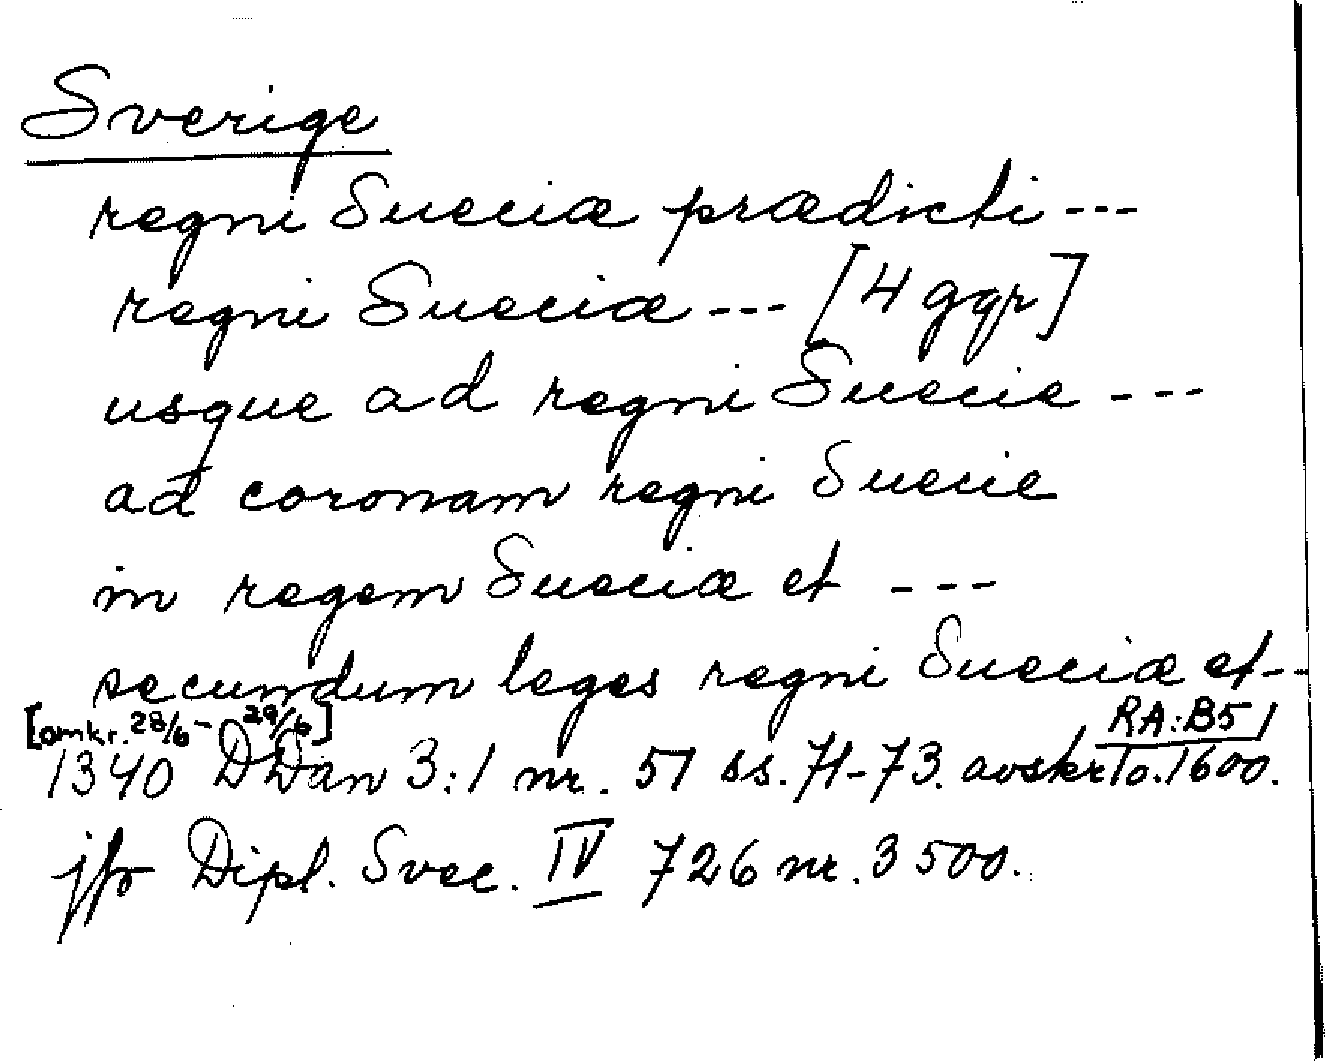 Sverige
regni Sueciæ prædicti ---
regni Sueciæ --- [4 ggr]
usque ad regni Suecie ---
ad coronam regni Suecie
in regem Sueciæ et ---
secundum leges regni Sueciæ et --
[omkr. 28/6 - 29/6] RA: B5
1340 DDan 3:1 nr. 57 ss. 71-73. avskr fo. 1600.
jfr Dipl. Svec. IV 726 nr. 3500.